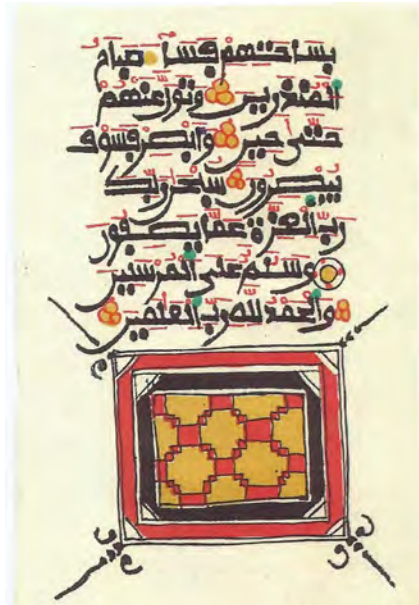 بساحتهم فساء صباح
المنذرين وتول عنهم
حتى حين وابصر فسوف
يبصرون سبحن ربك
رب العزة عما يصفون
وسلم على المرسلين
والحمد لله رب العلمين